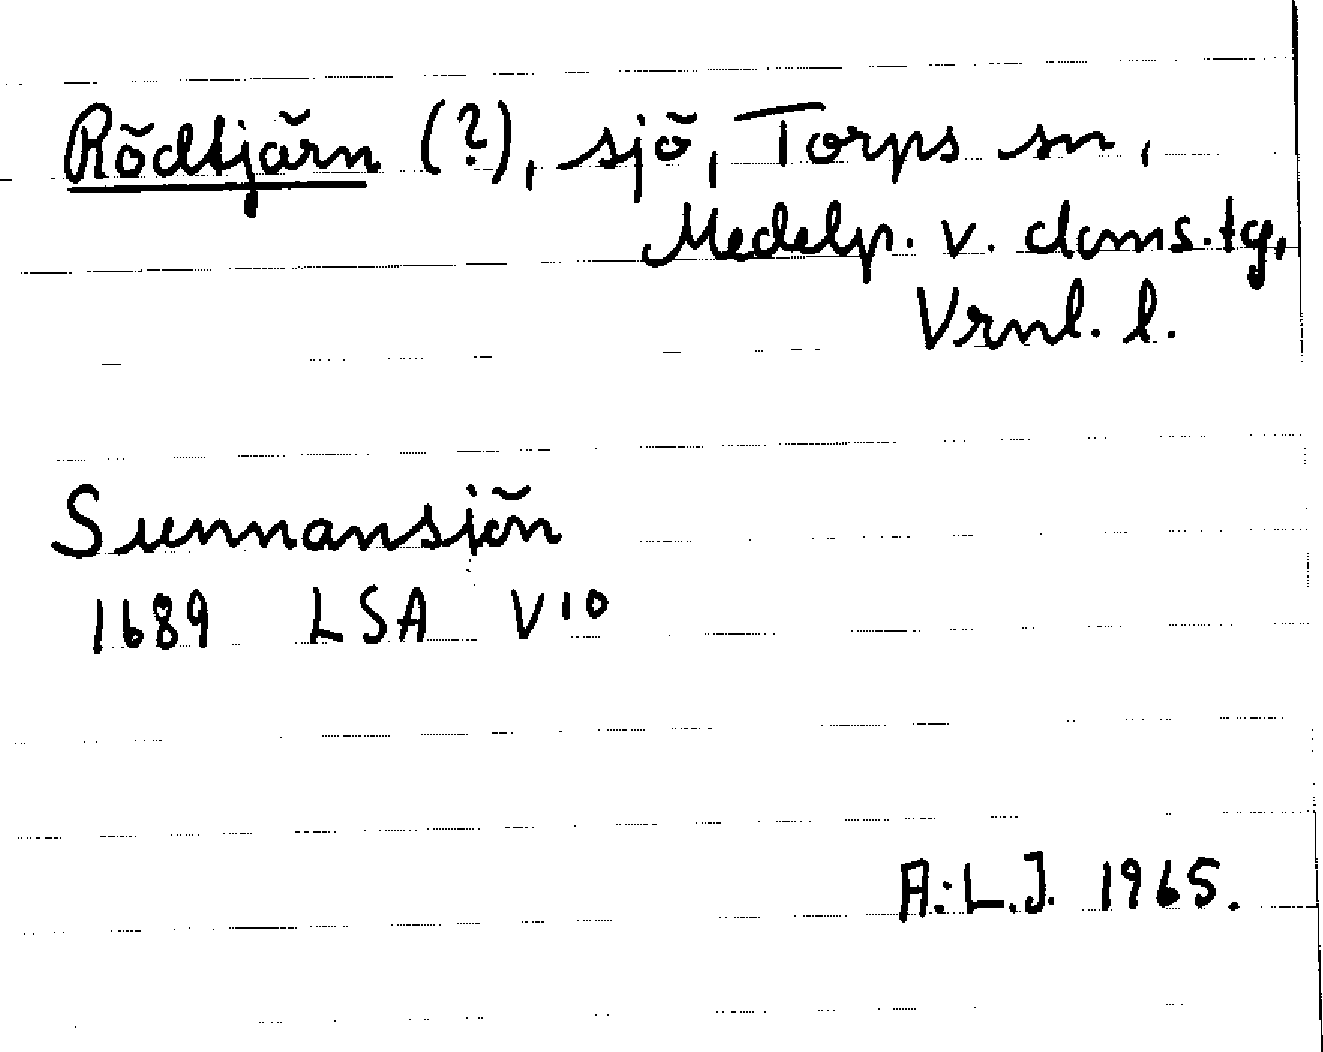 Rödtjärn (?), sjö, Torps sn,
Medelp. v. doms.tg,
Vrnl. l.
Sunnansjön
1689 LSA V10
A.L.J. 1965.